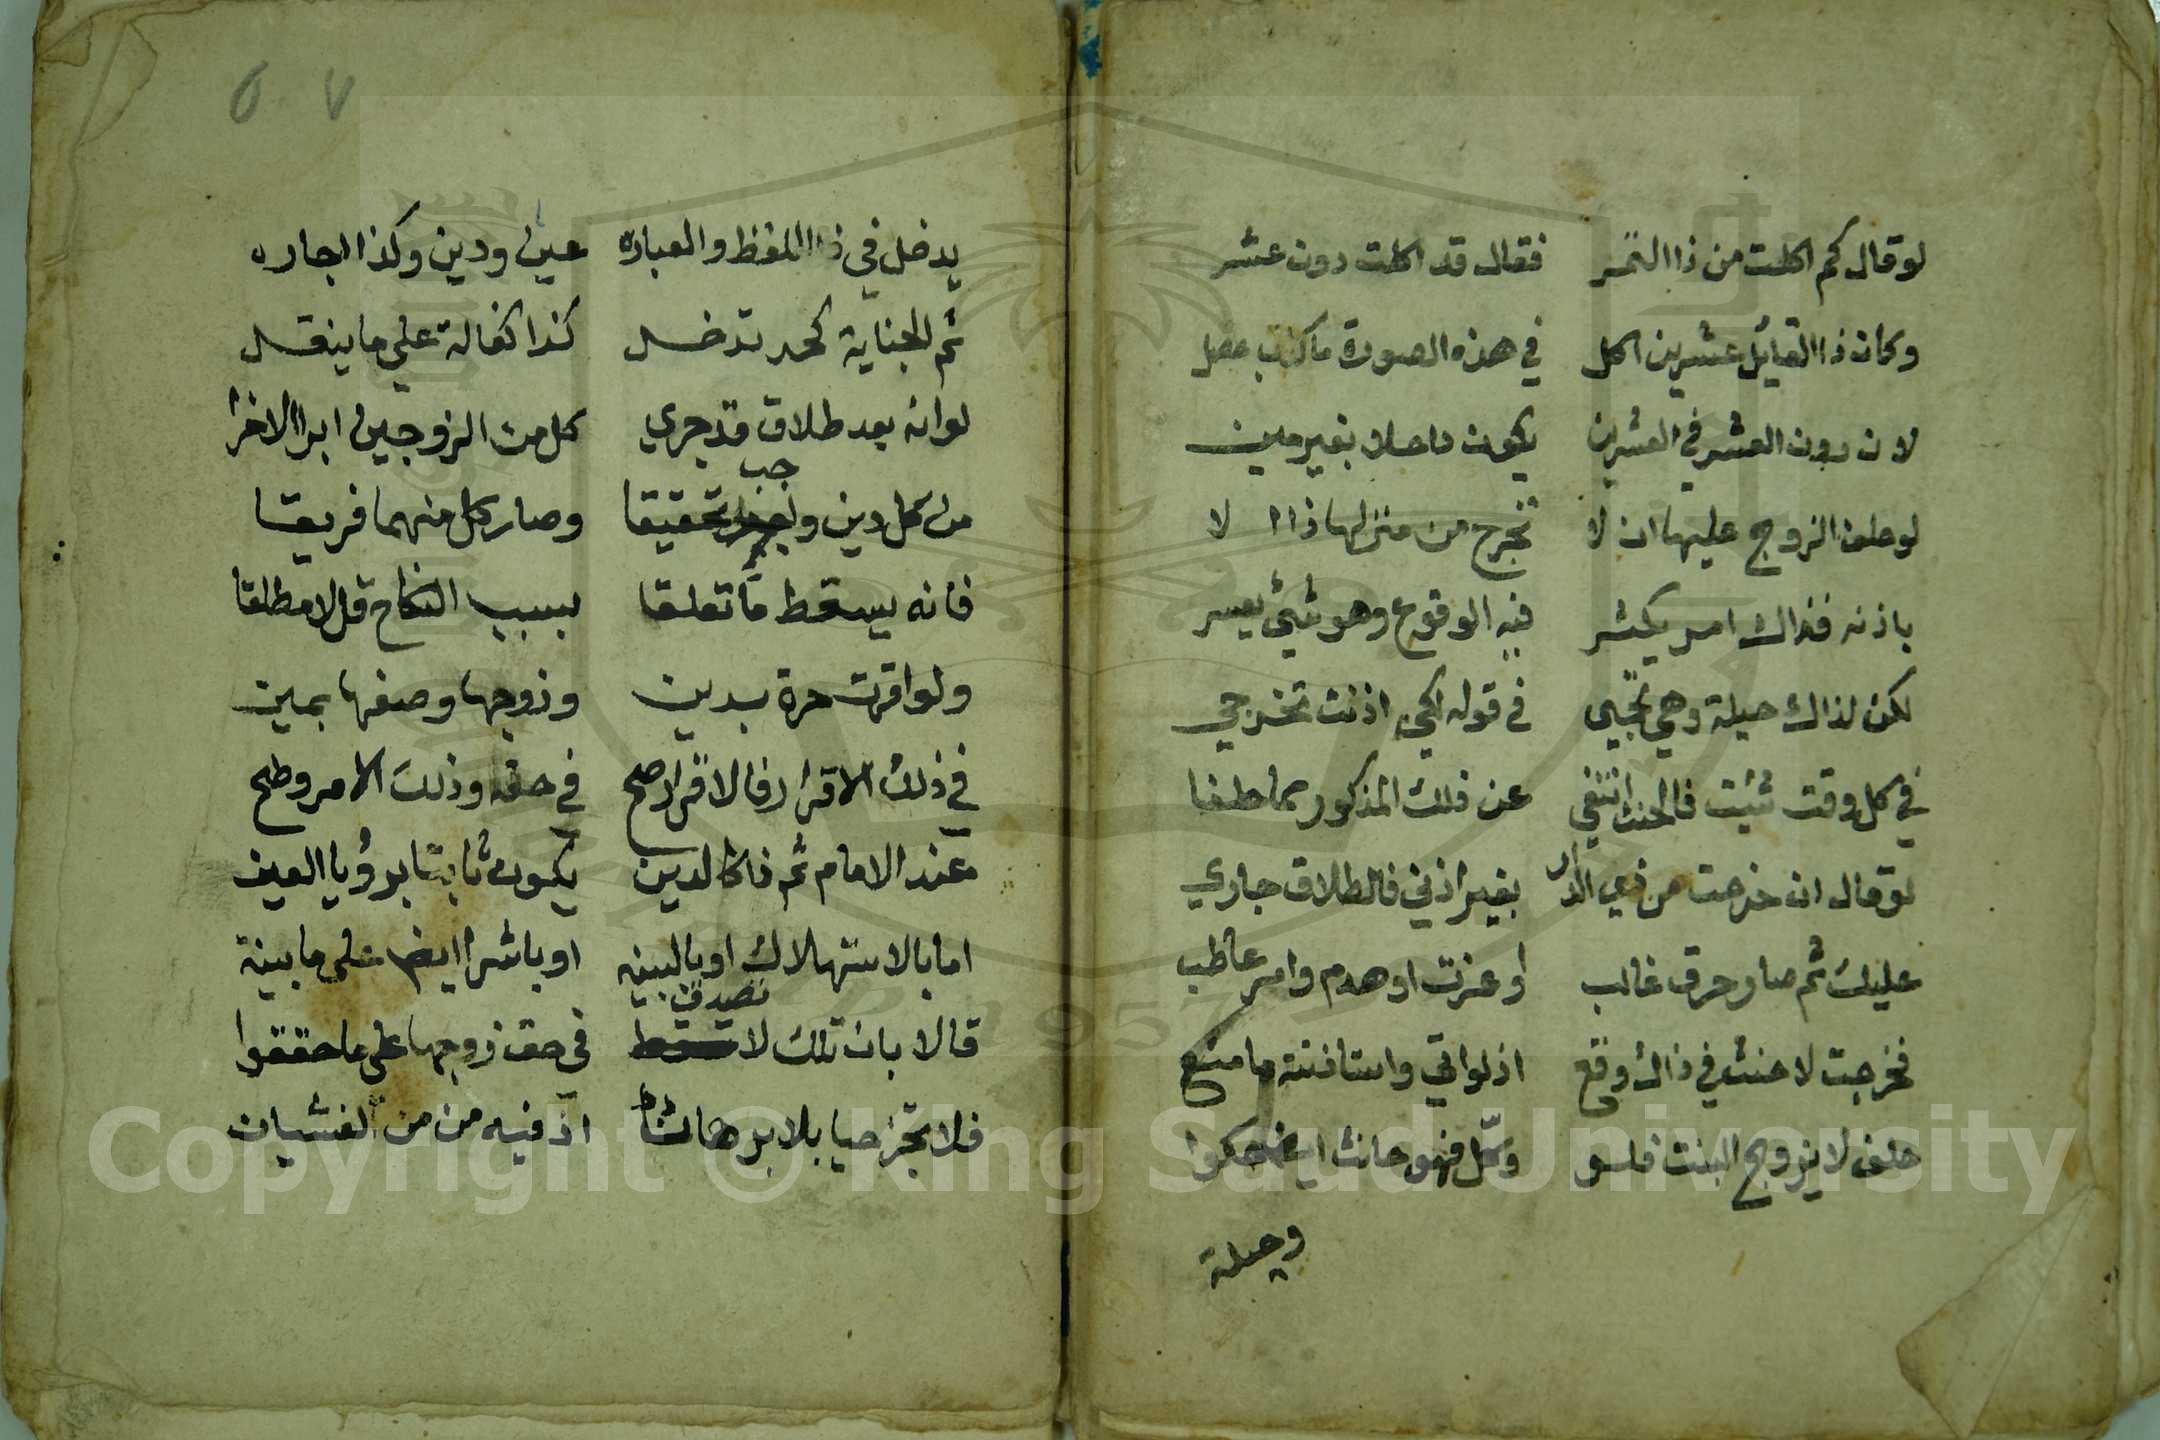 لوقال كم اكلت من ذا التمر فقال قد اكلت دون عشر
وكان ذا القايل عشرين اكل في هذه الصورة ماكذب حصل
لان دون العشر في العشرين يكون داخلا بغير مين
لوحلف الزوج عليها ان لا تخرج من منزلها ذا الا
باذنه فذاك امر يكثر فيه الوقوع وهو شيئ يعسر
لكن لذاك حيلة وهي تجيي في قوله لكي اذنت تخرجي
في كل وقت شئت فالحنث انتفى عن ذلك المذكور مما حلفا
لوقال ان خرجت من ذي الدار بغير اذني فالطلاق جاري
عليك ثم صار حرق غالب او غرق او هدم وامر عاطب
فخرجت لا حنث في ذاك وقع
حلف لا يزوج البنت فلو وكّل فهو حانث ايضا حكوا
وحيلة
٥٧
يدخل في ذا اللفظ والعباره عين ودين وكذا اجاره
ثم الجناية كحد تدخل كذا كفالة على ما ينقل
لوانه بعد طلاق قد جري كل من الزوجين ابرا الاخرا
من كل دين و تحقيقا وصار كل منهما فريقا
فانه يسقط ما تعلقا بسبب النكاح قل لا مطلقا
ولواقرت حرة بدين وزوجها وصفها بمين
في ذلك الاقرار فالاقرار صح في حقه وذلك الامر وضح
عند الامام ثم ذا كالدين يكون ثابتا برؤيا العين
اما بالاستهلاك او بالبينه او باشرا ايضا على ما بينه
قالا بان تلك لا تصدق في حق زوجها على ما حققوا
فلا تجز حيا بلا برهان اذ فيه من من الغشيان